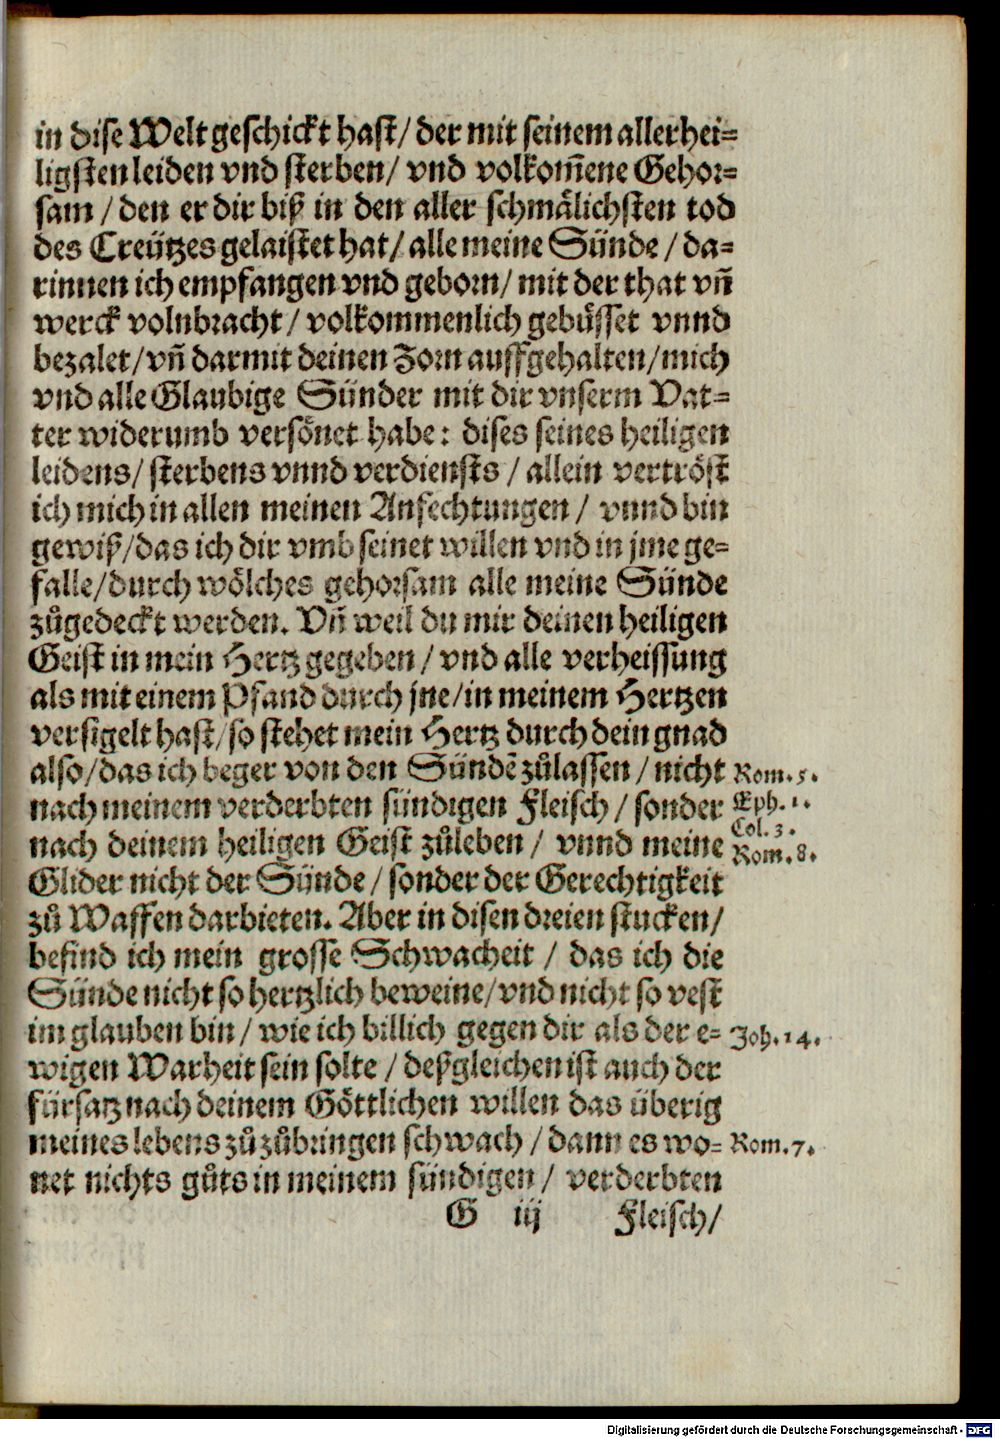 in dise Welt geschickt hast/ der mit seinem allerhei=
ligsten leiden vnd sterben/ vnd volkom̃ene Gehor=
sam / den er dir biß in den aller schmålichsten tod
des Creützes gelaistet hat/ alle meine Sünde / da=
rinnen ich empfangen vnd geborn/ mit der that vñ
werck volnbracht / volkommenlich gebüsset vnnd
bezalet/ vñ darmit deinen Zorn auffgehalten/ mich
vnd alle Glaubige Sünder mit dir vnserm Vat=
ter widerumb versönet habe: dises seines heiligen
leidens/ sterbens vnnd verdiensts / allein vertröst
ich mich in allen meinen Anfechtungen / vnnd bin
gewiß/ das ich dir vmb seinet willen vnd in jme ge=
falle/ durch wölches gehorsam alle meine Sünde
zůgedeckt werden. Vñ weil du mir deinen heiligen
Geist in mein Hertz gegeben / vnd alle verheissung
als mit einem Pfand durch jne/ in meinem Hertzen
versigelt hast/ so stehet mein Hertz durch dein gnad
also/ das ich beger von den Sündẽ zůlassen / nicht Rom. 5.
nach meinem verderbten sündigen Fleisch / sonder Eph. 1.
Col. 3.
nach deinem heiligen Geist zůleben / vnnd meine Rom. 8.
Glider nicht der Sünde / sonder der Gerechtigkeit
zů Waffen darbieten. Aber in disen dreien stucken/
befind ich mein grosse Schwacheit / das ich die
Sünde nicht so hertzlich beweine/ vnd nicht so vest
im glauben bin / wie ich billich gegen dir als der e= Joh. 14.
wigen Warheit sein solte / deßgleichen ist auch der
fürsatz nach deinem Göttlichen willen das überig
meines lebens zů zůbringen schwach / dann es wo= Rom. 7.
net nichts gůts in meinem sündigen / verderbten
G iij Fleisch/
Digitalisierung gefördert durch die Deutsche Forschungsgemeinschaft - DFG